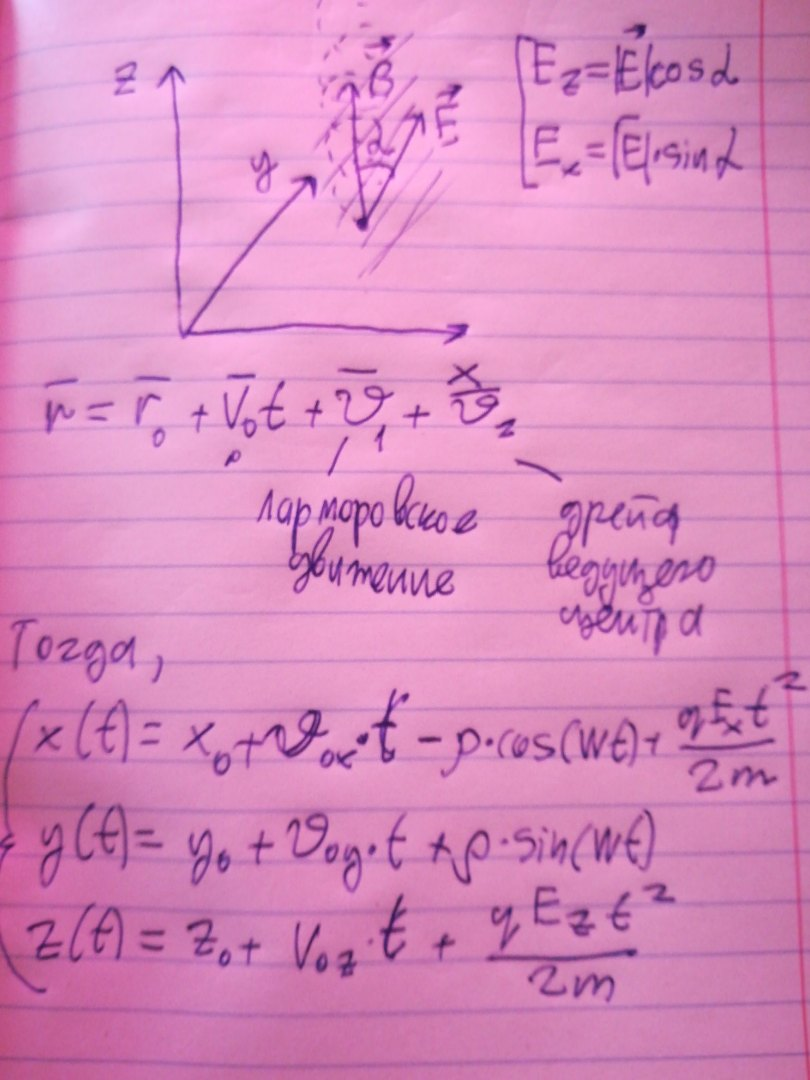 z
y
B⃗
E⃗
α
E_z = |E⃗| cos α
E_x = |E⃗| · sin α
r̄ = r̄₀ + V̄₀t + ϑ̄₁ + ϑ̄₂
x
ларморовское
движение
дрейф
ведущего
центра
Тогда,
x(t) = x₀ + ϑ₀ₓ · t − ρ · cos(Wt) + qEₓt²/2m
y(t) = y₀ + ϑ_{0y} · t + ρ · sin(Wt)
z(t) = z₀ + V_{0z} · t + qE_z t²/2m